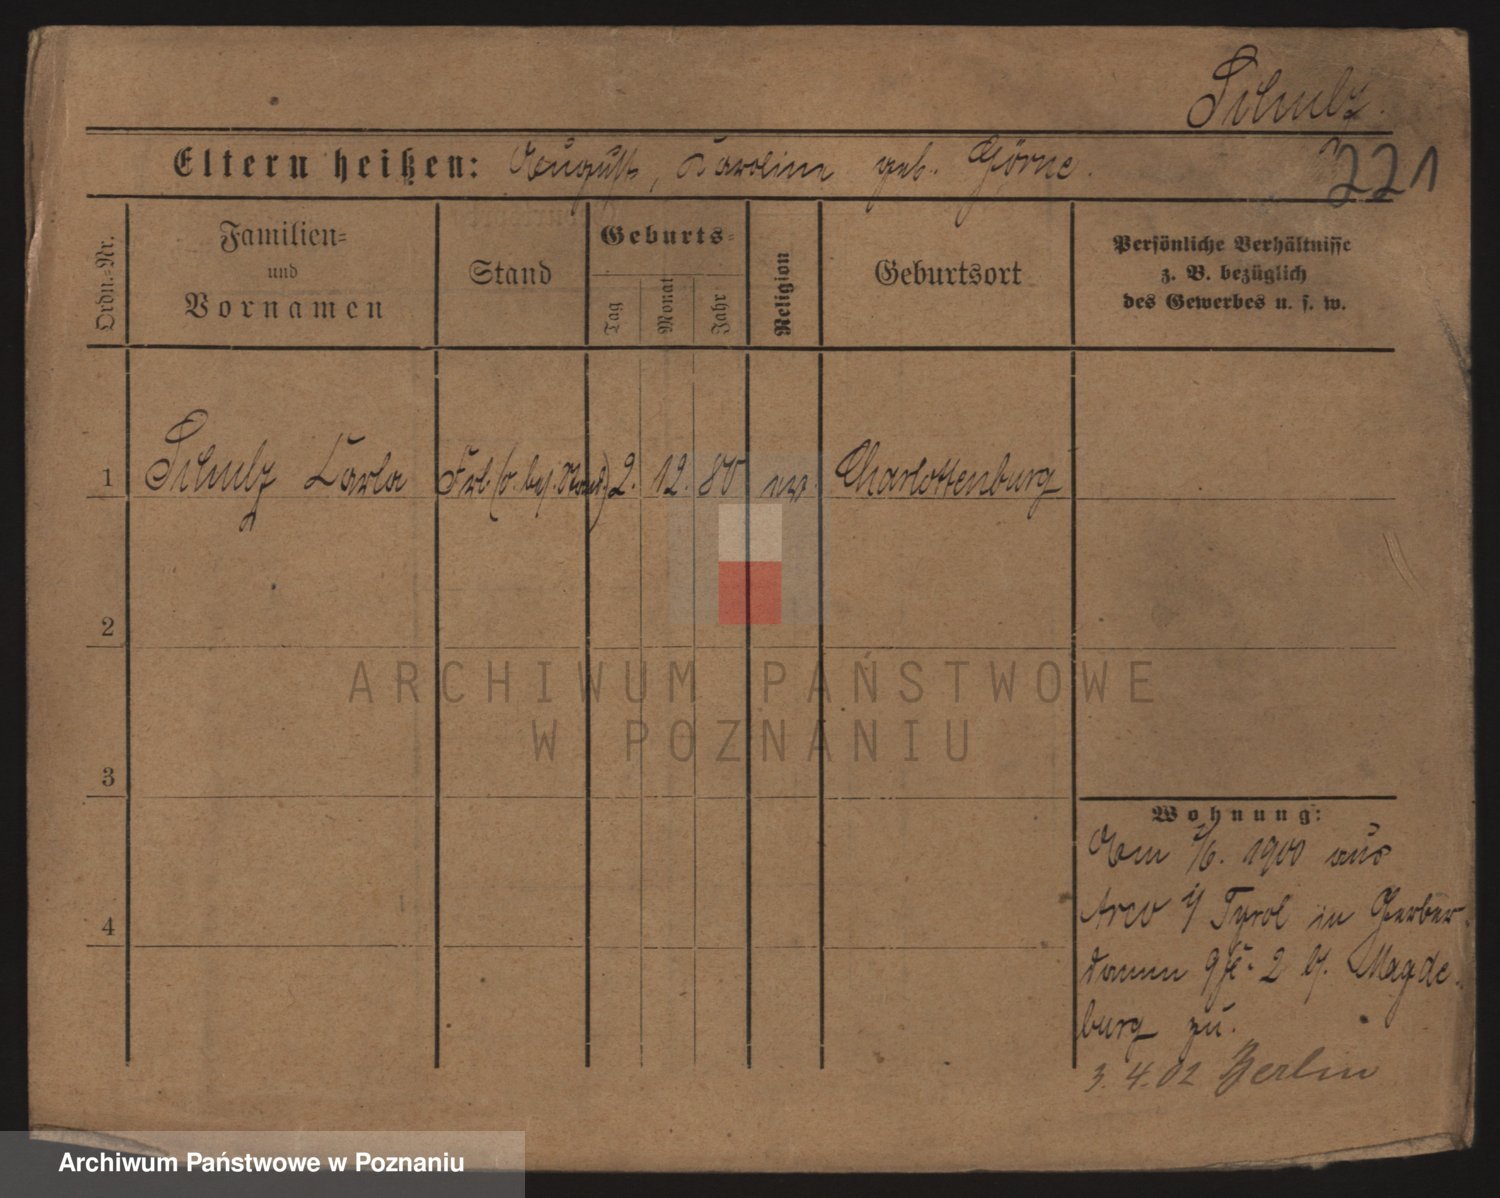 Schulz.
Eltern heißen: August, Karoline geb. Görne.
221
Ordn.-Nr.
Familien-
und
Vornamen
Stand
Geburts-
Tag
Monat
Jahr
Religion
Geburtsort
Persönliche Verhältnisse
z. B. bezüglich
des Gewerbes u. s. w.
1 Schulz Carla Frl. (o. bes. Stand) 2. 12. 80 ev. Charlottenburg
2
ARCHIWUM PAŃSTWOWE
W POZNANIU
3
Wohnung:
Am 1900 aus
Arco i/ Tyrol in Gerber-
damm 2 Magde-
burg zu.
4
3.4.02 Berlin
Archiwum Państwowe w Poznaniu